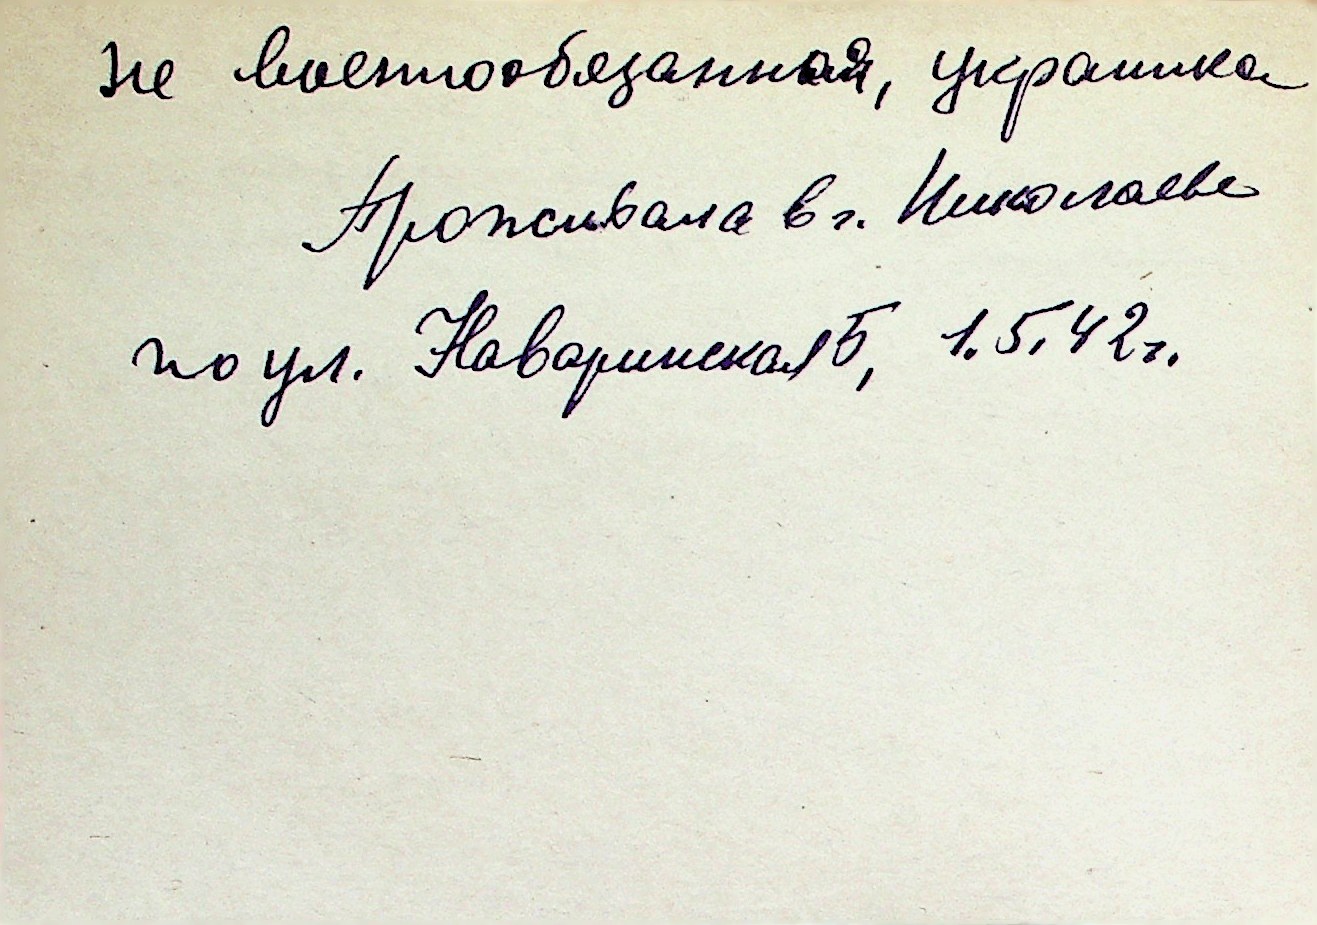 не военнообязанная, украинка
Проживала в г. Николаеве
по ул. Наваринская 5, 1.5.42 г.